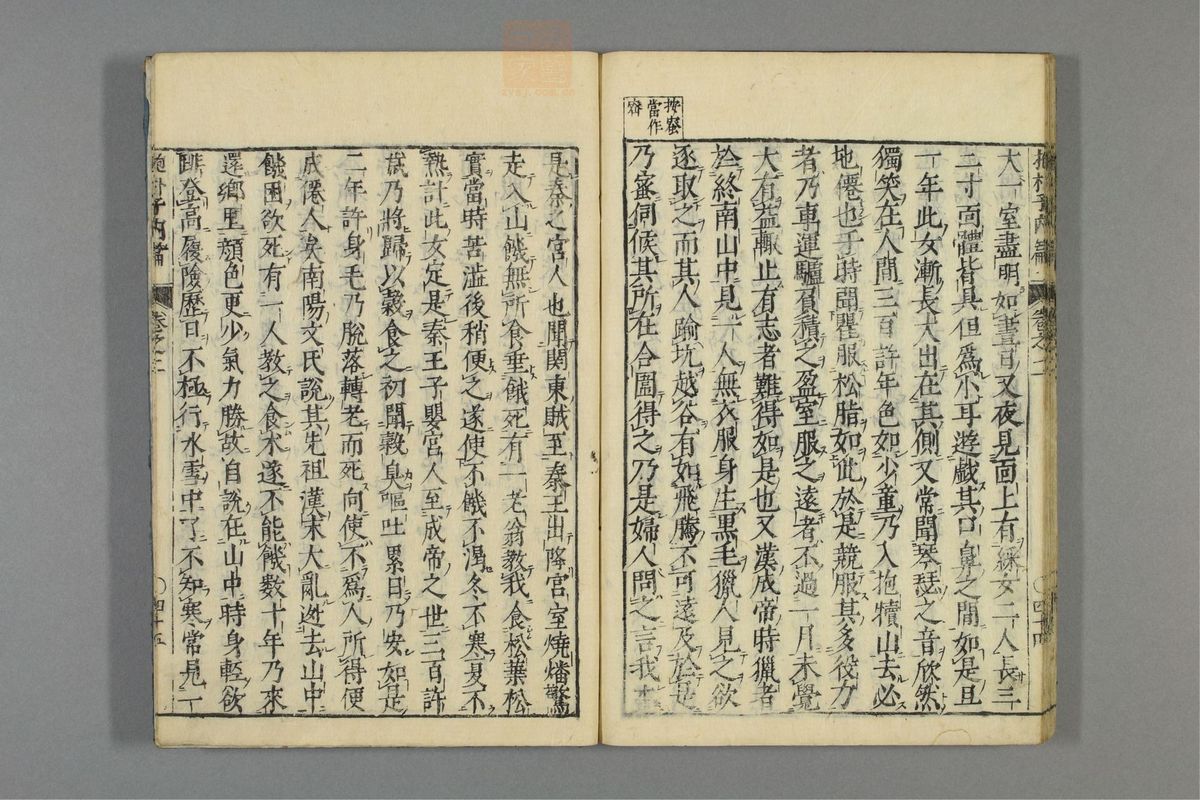 按蜜
當作
密
大一室盡明如晝日又夜見面上有綵女二人長三
二寸面體皆具但爲小耳遊戲其口鼻之間如是且
一年此女漸長大出在其側又常聞琴瑟之音欣然
獨笑在人間三百許年色如少童乃入抱犢山去必
地僊也于時聞瞿服松脂如此於是競服其多役力
者乃車運驢負積之盈室服之遠者不過一月未覺
大有益輒止有志者難得如是也又漢成帝時獵者
於終南山中見一人無衣服身生黒毛獵人見之欲
逐取之而其人踰坑越谷有如飛騰不可逮及於是
乃蜜伺候其所在合圍得之乃是婦人問之言我本
抱朴子內篇
卷之二
四十四
是秦之宮人也聞關東賊至秦王出降宮室燒燔驚
走入山饑無所食垂餓死有一老翁教我食松葉松
實當時苦澁後稍便之遂使不饑不渴冬不寒夏不
熱計此女定是秦王子嬰宮人至成帝之世三百許
歲乃將歸以穀食之初聞穀臭嘔吐累日乃安如是
二年許身毛乃脫落轉老而死向使不爲人所得便
成僊人矣南陽文氏說其先祖漢末大亂迯去山中
饑困欲死有一人教之食朮遂不能饑数十年乃來
還鄉里顏色更少氣力勝故自說在山中時身輕欲
跳登高履險歷日不極行水雪中了不知寒常見一
抱朴子內篇
卷之二
四十五